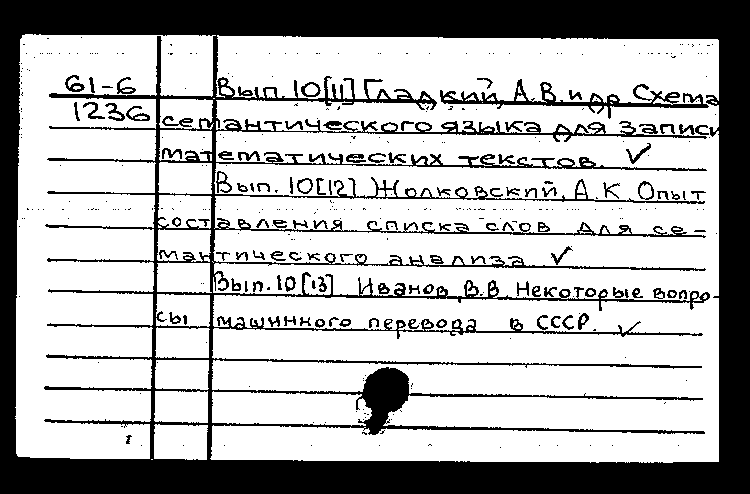 61-6 Вып. 10[11] Гладкий, А.В. и др. Схема
1236 семантического языка для записи
математических текстов. ✓
Вып. 10[12] Жолковский, А.К. Опыт
составления списка слов для се-
мантического анализа ✓
Вып. 10[13] Иванов, В.В. Некоторые вопро-
сы машинного перевода в СССР. ✓